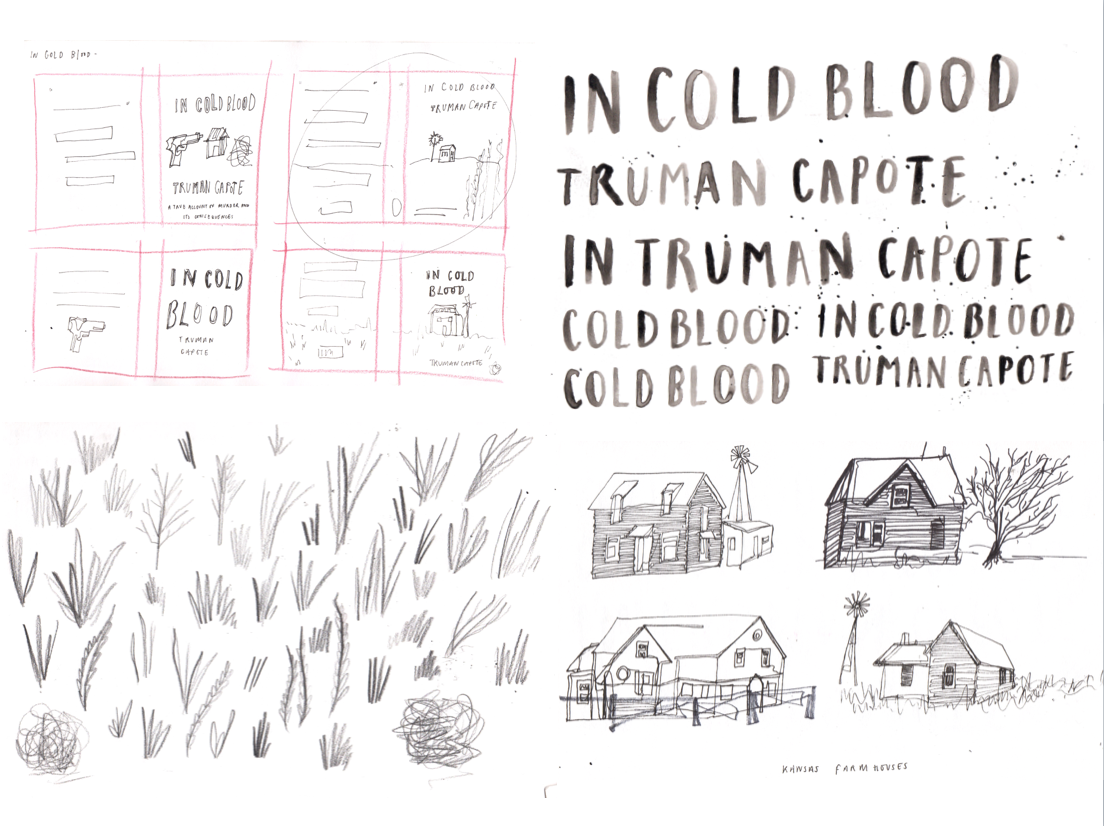 IN COLD BLOOD -
IN COLD BLOOD
TRUMAN CAPOTE
A TRUE ACCOUNT OF MURDER AND
ITS CONSEQUENCES
IN COLD BLOOD
TRUMAN CAPOTE
IN COLD
BLOOD
TRUMAN
CAPOTE
IN COLD
BLOOD
TRUMAN CAPOTE
IN COLD BLOOD
TRUMAN CAPOTE
IN TRUMAN CAPOTE
COLD BLOOD
COLD BLOOD
IN COLD BLOOD
TRUMAN CAPOTE
KANSAS FARM HOUSES